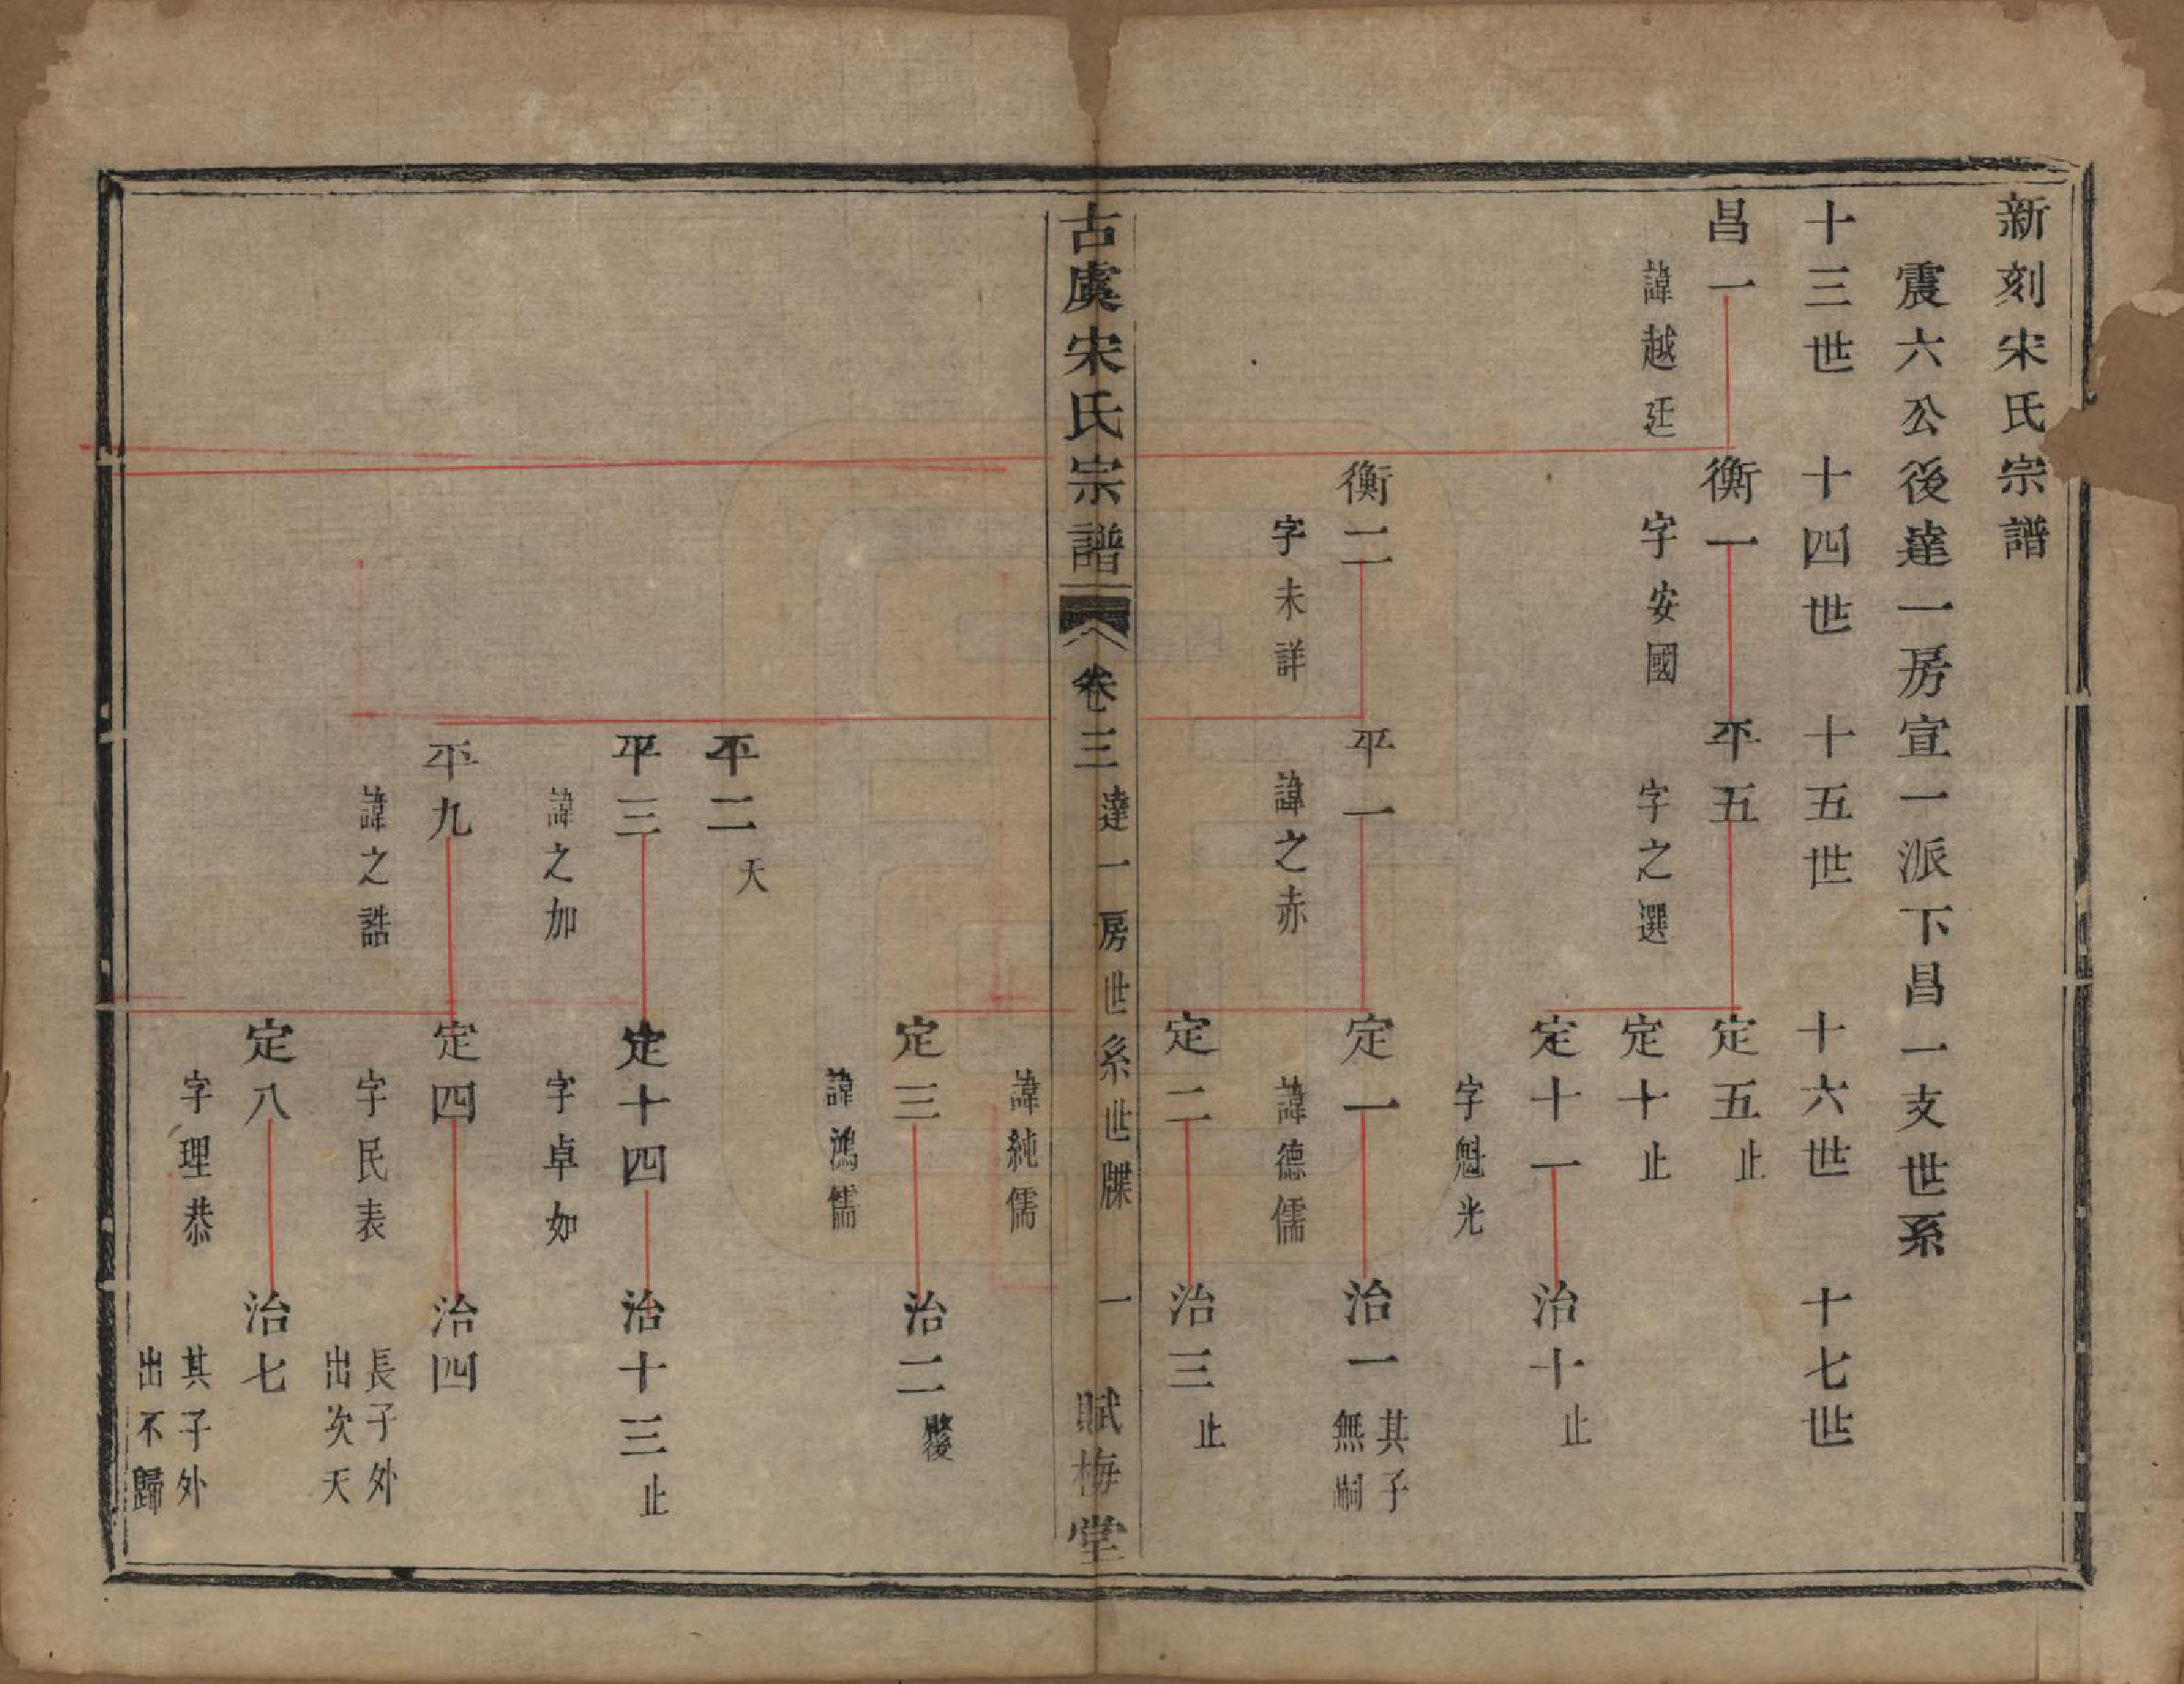 新刻宋氏宗譜
震六公後達一房宣一派下昌一支世系
十三世　十四世　十五世　十六世　十七世
昌一　衡一　平五　定五　止
諱越廷　字安國　字之選　定十　止
定十一　治十　止
字魁光
衡二　平一　定一　治一　其子無嗣
字未詳　諱之赤　諱德儒
定二　治三　止
古虞宋氏宗譜　卷三　達一房世系世牒　一　賦梅堂
諱純儒
定三　治二
諱鴻儒
平二　夭
平三　定十四　治十三　止
諱之加　字卓如
平九　定四　治四　長子外出次夭
諱之誥　字民表
定八　治七　其子外出不歸
字理恭